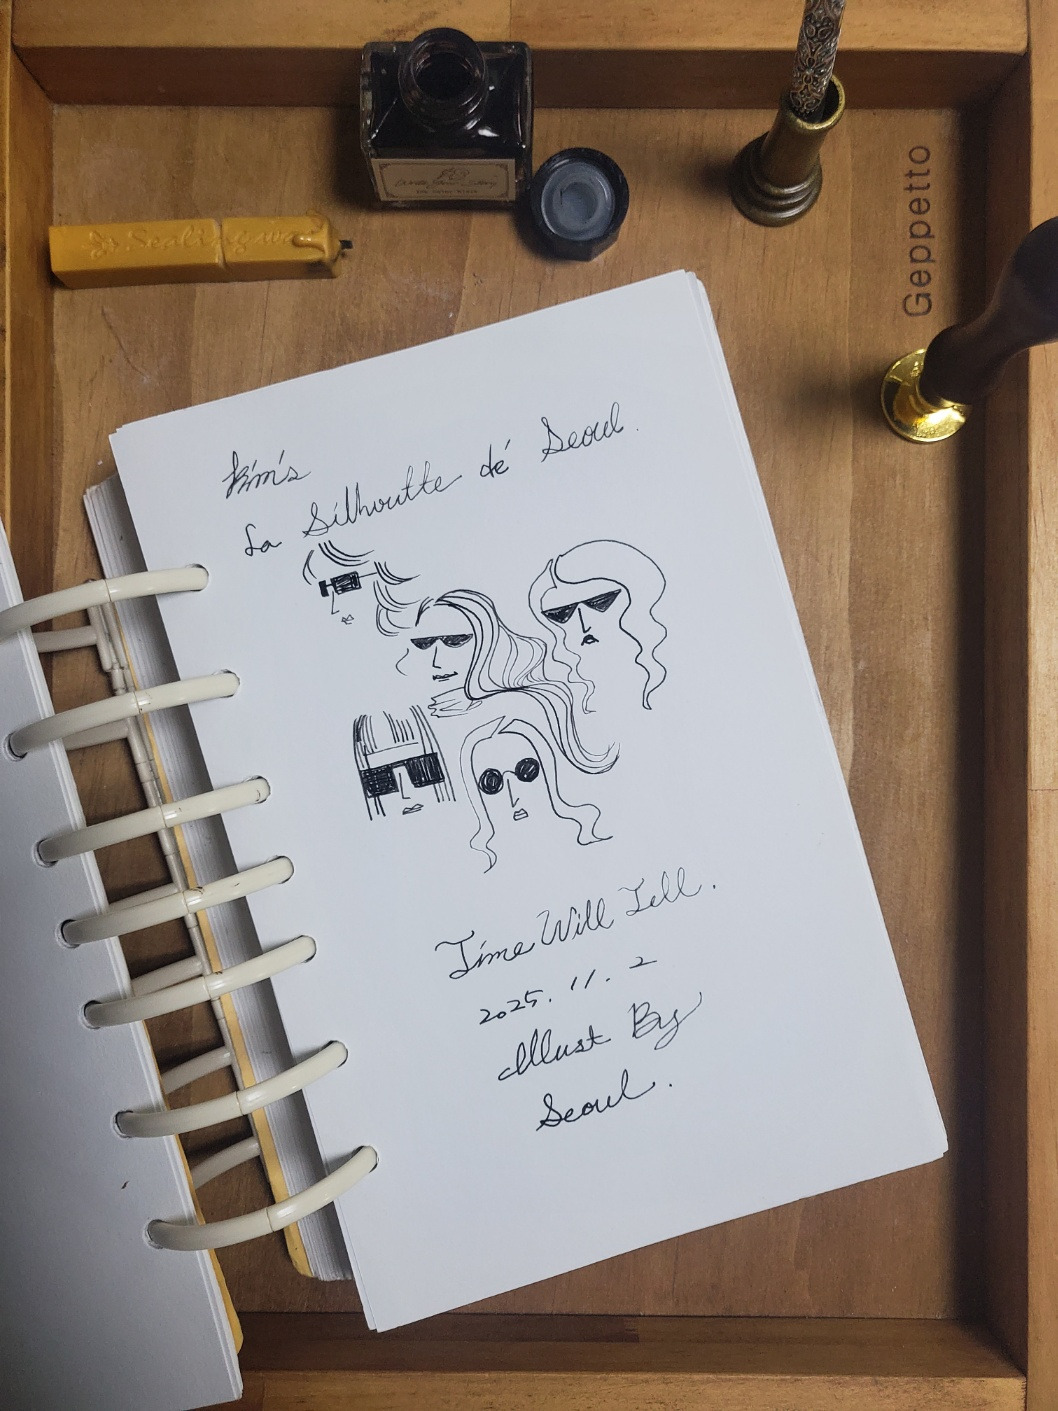 Sealing wax
Write Your Story
Geppetto
Kim's
La Silhoutte dé Seoul.
Time Will Tell.
2025. 11. 2
Illust By
Seoul.